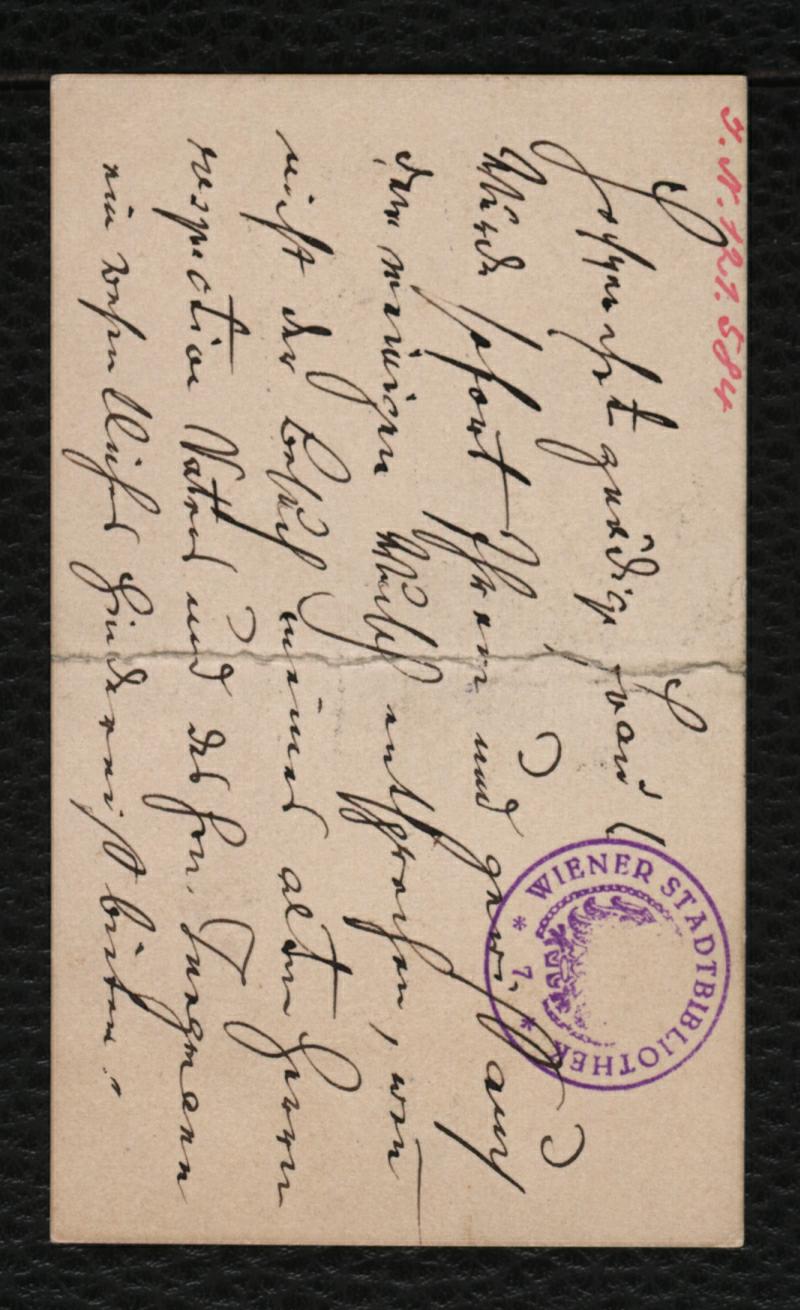 J. N. 121.584
Hochgeehrte gnädige Frau!
Würde sofort Ihrem und gewiß auch
dem meinigen Wunsch entsprechen, wenn
nicht der Besuch meines alten Herrn
respective Vaters und des Hrn. Jungmann
ein wesentliches Hinderniß bieten.
WIENER STADTBIBLIOTHEK
* 7 *